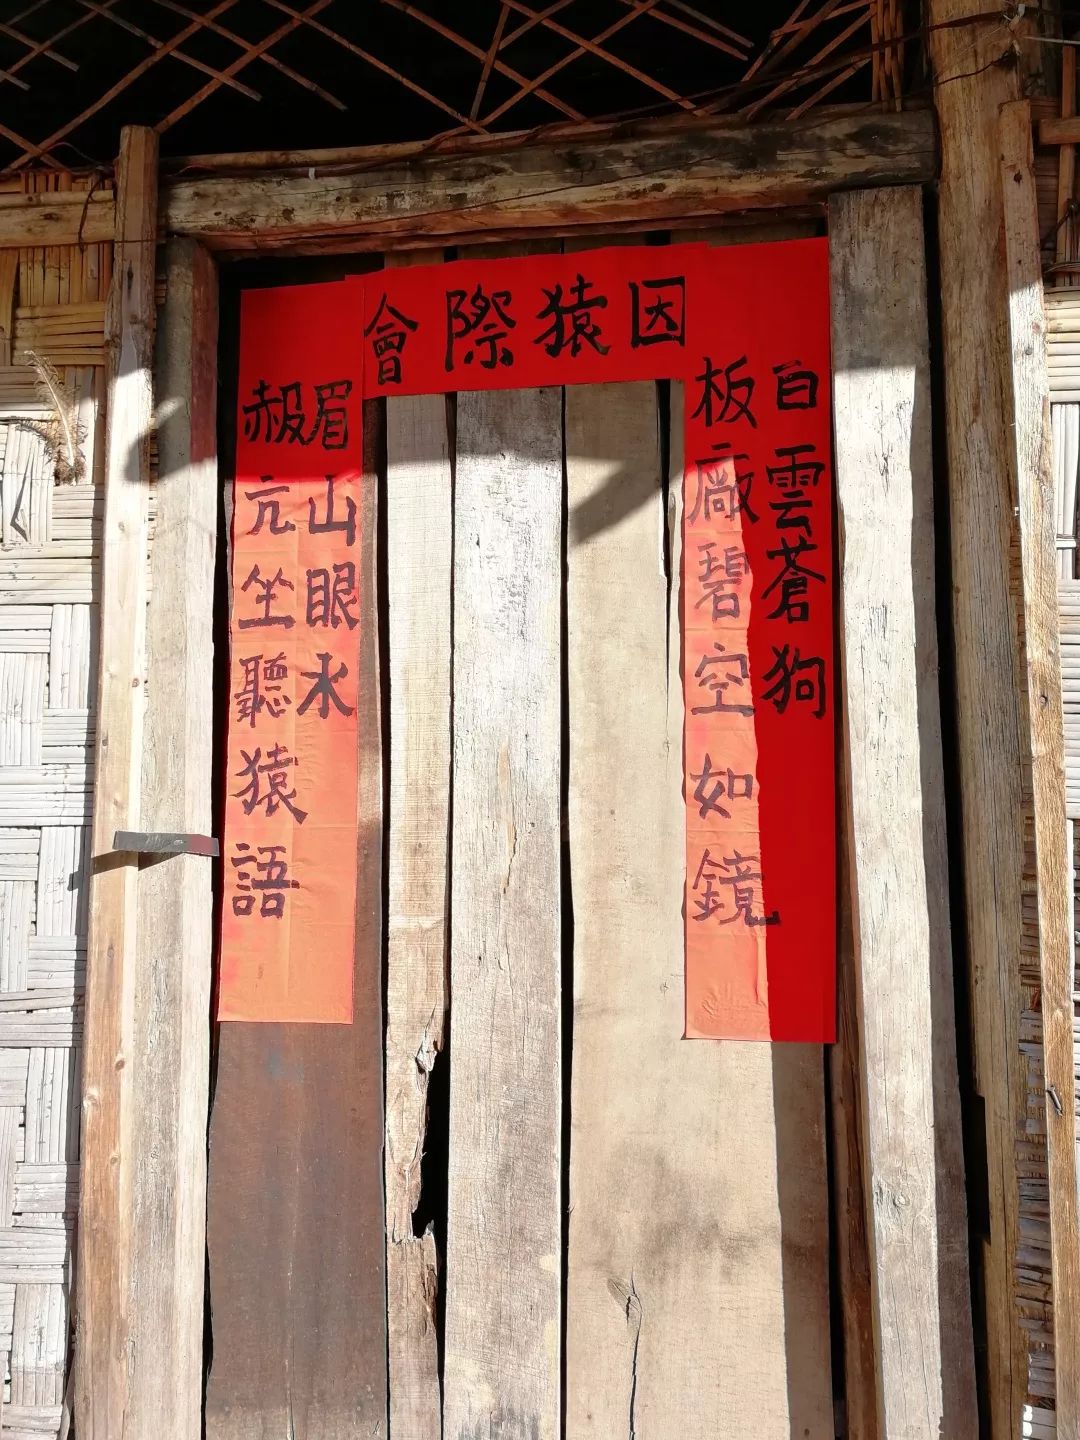 因猿際會
白雲蒼狗
板廠碧空如鏡
眉山眼水
赧亢坐聽猿語